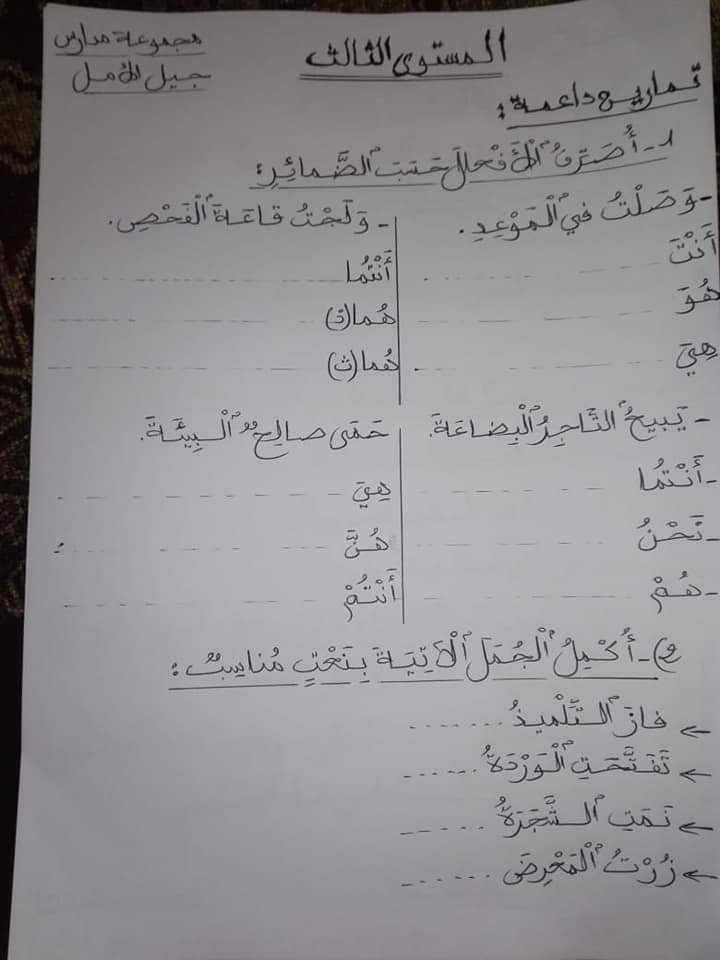 مجموعة مدارس
جيل الأمل
المستوى الثالث
تمارين داعمة :
1- أُصَرِّفُ الْأَفْعالَ حَسَبَ الضَّمائِرِ :
- وَصَلْتُ في الْمَوْعِدِ .
أَنْتَ
هُوَ
هِيَ
- وَلَجْتُ قاعَةَ الْفَحْصِ .
أَنْتُما
هُما (ذ)
هُما (ث)
- يَبيعُ التّاجِرُ الْبِضاعَةَ .
- أَنْتُما
- نَحْنُ
- هُمْ
حَمَى صالِحٌ الْبيئَةَ .
هِيَ
هُنَّ
أَنْتُمْ
2)- أُكْمِلُ الْجُمَلَ الْآتِيَةَ بِنَعْتٍ مُناسِبٍ :
← فازَ التِّلْميذُ ......
← تَفَتَّحَتِ الْوَرْدَةُ ......
← نَمَتِ الشَّجَرَةُ ......
← زُرْتُ الْمَعْرِضَ ......